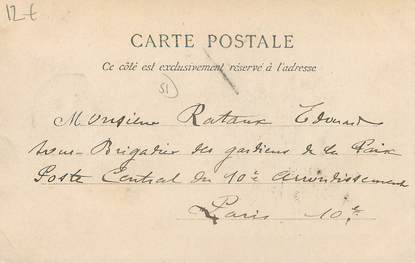 12 €
CARTE POSTALE
Ce côté est exclusivement réservé à l'adresse
51
Monsieur Rataux Edouard
Sous-Brigadier des gardiens de la Paix
Poste Central du 10e Arrondissement
Paris 10e